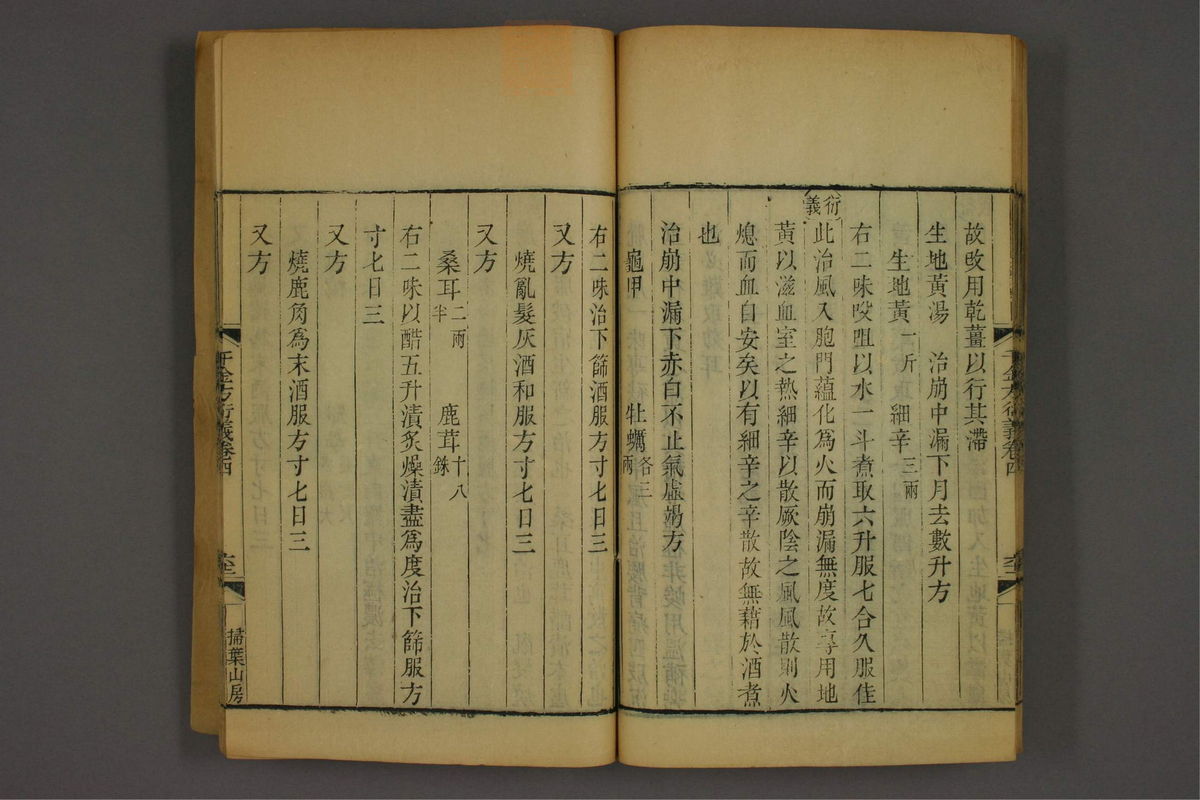 故改用乾薑以行其滯
生地黃湯　治崩中漏下月去數升方
生地黃一斤　細辛三兩
右二味㕮咀以水一斗煮取六升服七合久服佳
衍義
此治風入胞門蘊化為火而崩漏無度故專用地
黃以滋血室之熱細辛以散厥陰之風風散則火
熄而血自安矣以有細辛之辛散故無藉於酒煮
也
治崩中漏下赤白不止氣虛竭方
龜甲　牡蠣各三兩
右二味治下篩酒服方寸七日三
又方
燒亂髮灰酒和服方寸七日三
又方
桑耳二兩半　鹿茸十八銖
右二味以醋五升漬炙燥漬盡為度治下篩服方
寸七日三
又方
燒鹿角為末酒服方寸七日三
又方
千金方衍義卷四
掃葉山房